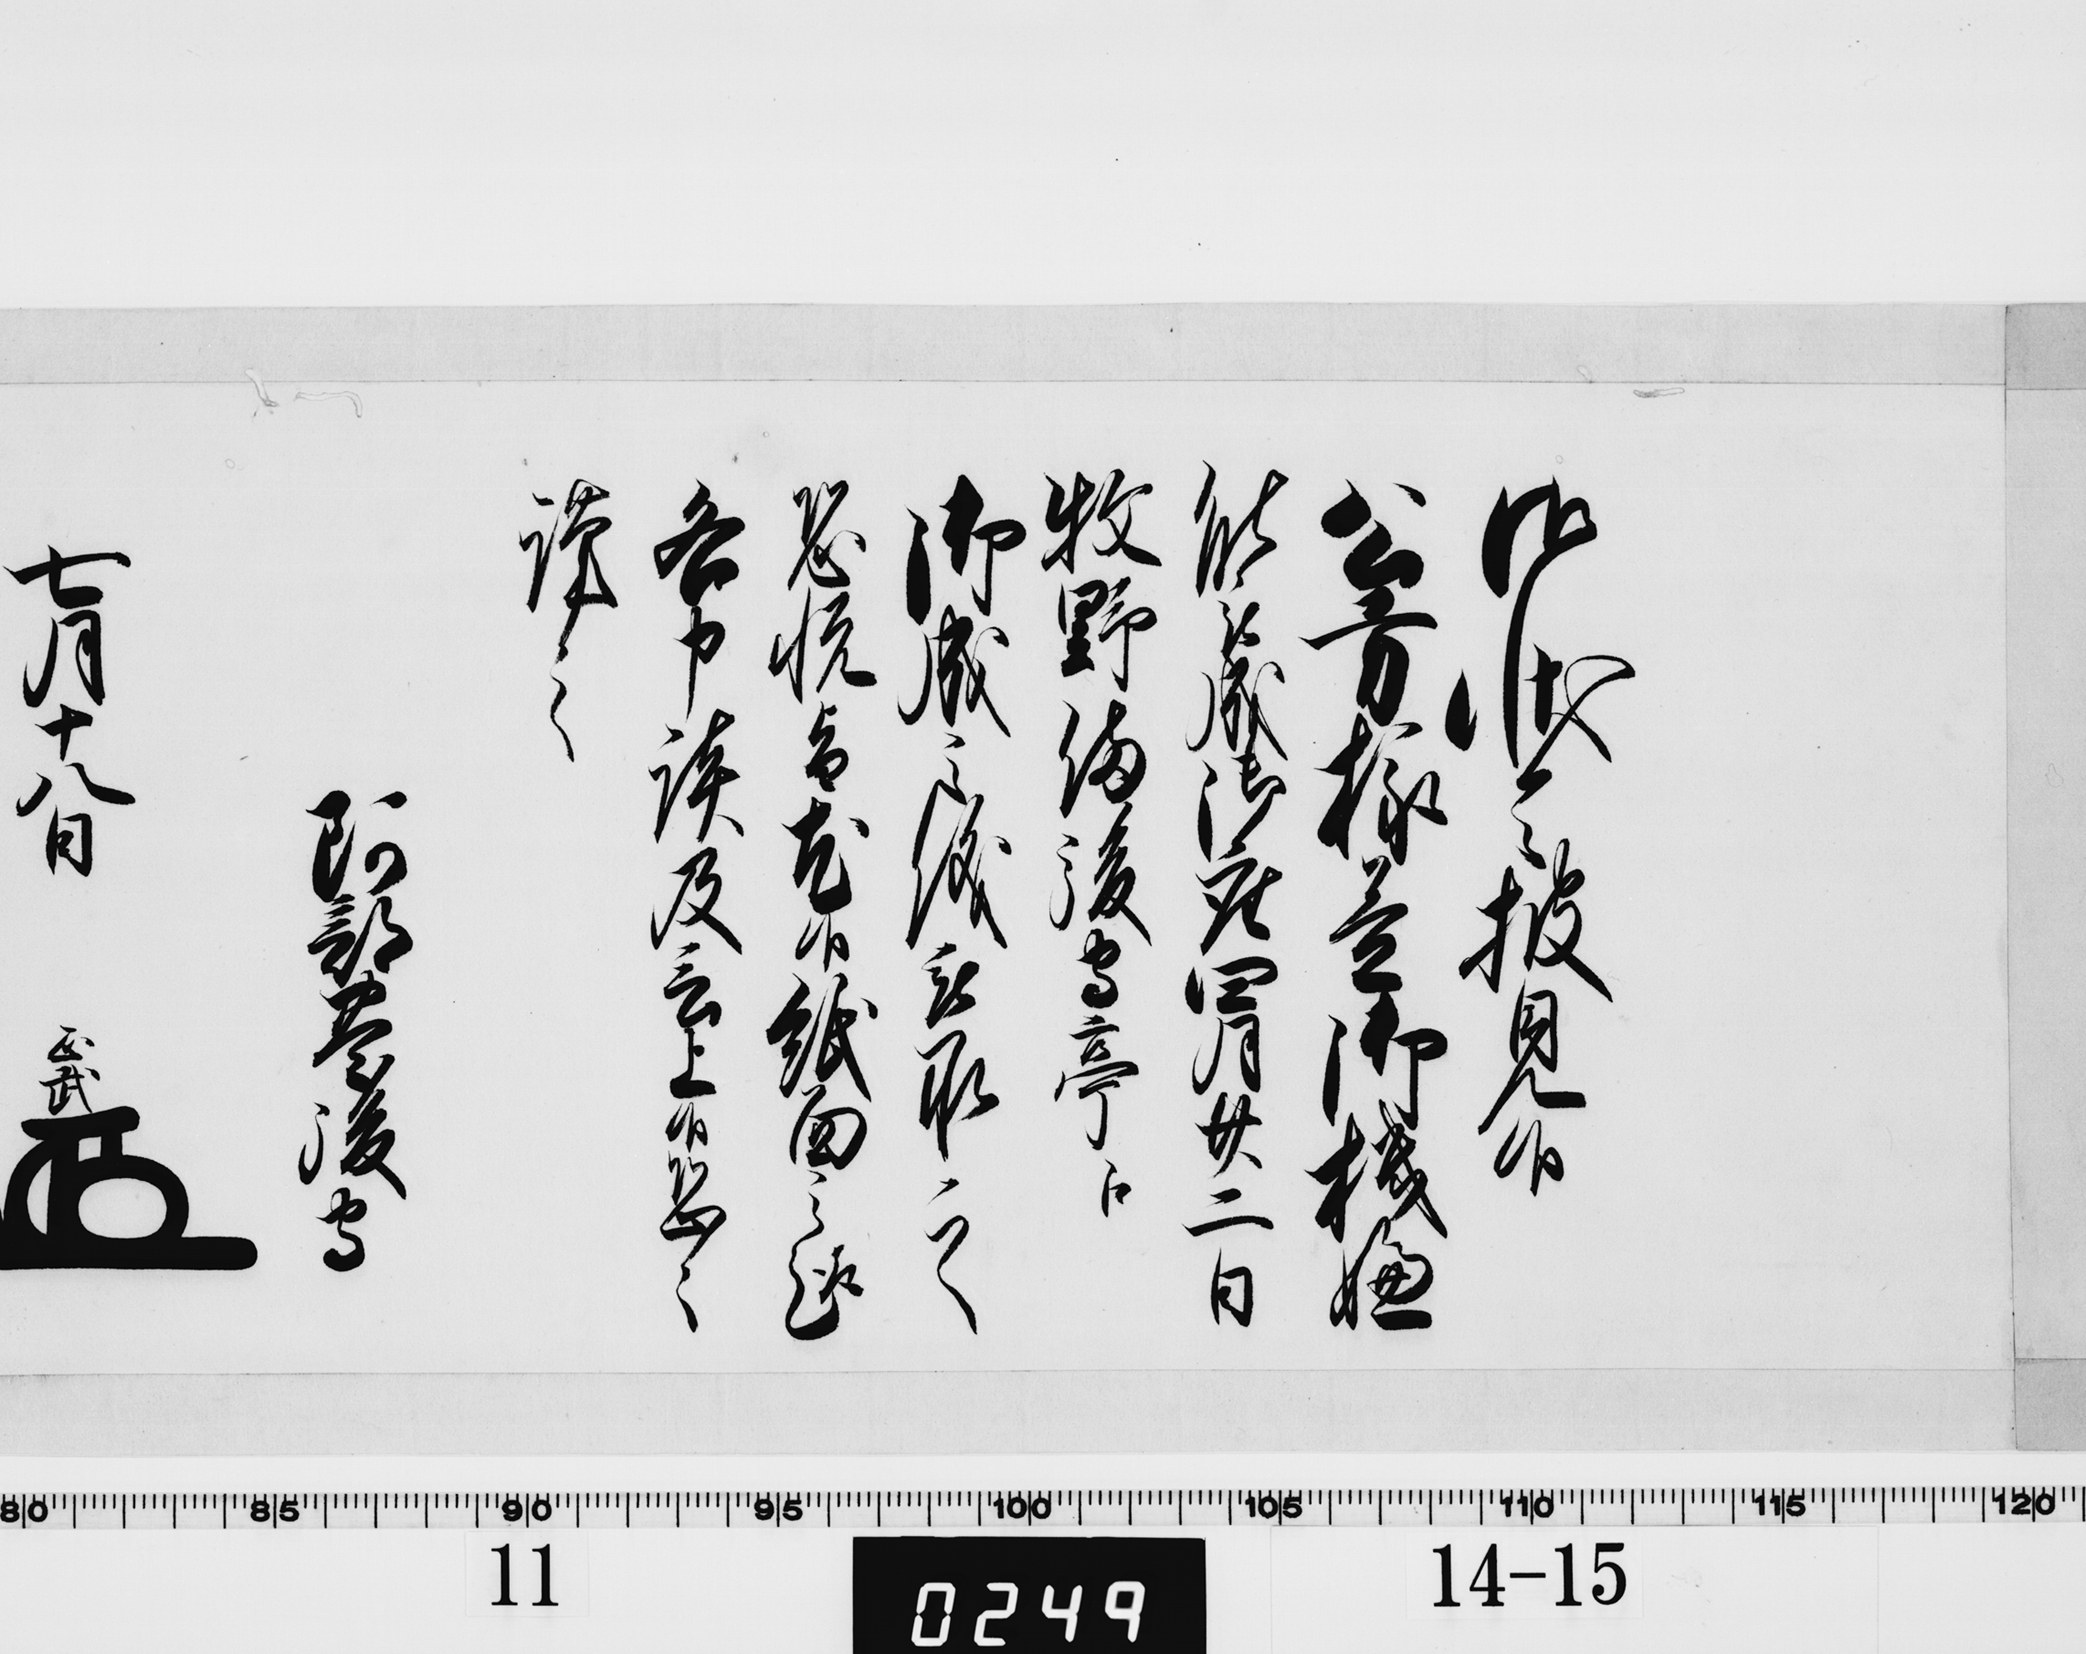 御状令披見候
公方様益御機嫌
能被成御座四月廿二日
牧野備後守亭江
御成之儀被承之
恐悦旨尤候紙面之趣
各申談及言上候恐々
謹言
阿部豊後守
七月十八日
正武
80 85 90 95 100 105 110 115 120
11
0249
14-15